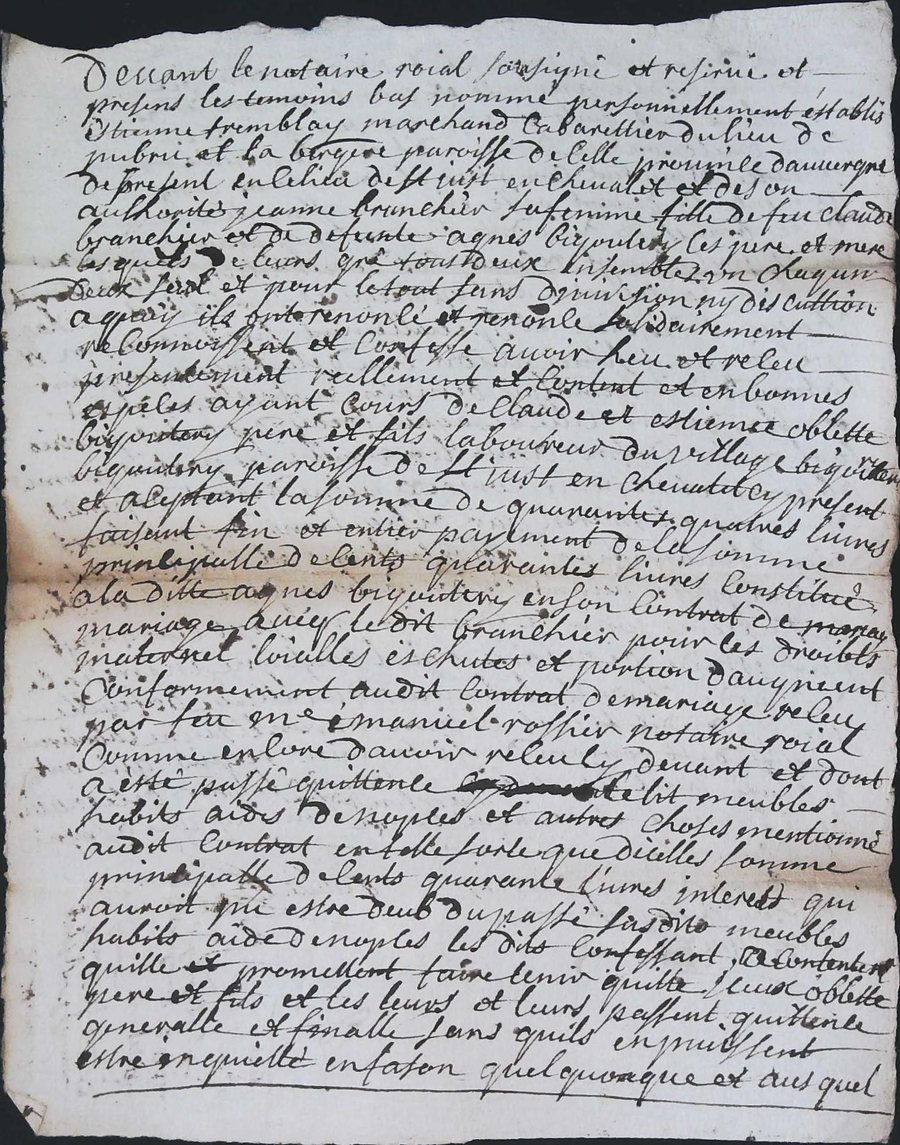 Devant le notaire roial sousigné et reservé et
presens les temoins bas nommé personnellement établis
estienne tremblay marchand cabarettier du lieu de
pubrii et la bergere paroisse de celle province dauvergne
de present en le lieu de st just en chevalet et de son
authorité jeanne branchier sa femme fille de feu claude
branchier et de defunte agnes bigouterÿ ces pere et mere
lesquels de leurs gré tous deux ensemble un chaqun
deux seul et pour le tout sans divission ny discuttion
a quoÿ ils ont renoncé et renonce solidairement
reconnoissent et confesse avoir heu et receu
presentement reellement et content et en bonnes
especes ayant cours de claude et estienne oblette
bigouterÿ pere et fils laboureur du village bigouterÿ
bigouterÿ paroisse de st just en chevalet cy present
et aceptant la somme de quarantes quatres livres
faisant fin et entier payement de la somme
principalle de cents quarantes livres constituè
a la ditte agnes bigouterÿ en son contrat de mariag
mariage avecq le dit branchier pour les droibts
maternel loialles eschutes et portion daugment
conformement audit contrat de mariage receu
par feu me émanuel rossier notaire roial
comme encore davoir receu cy devant et dont
a esté passé quittence le lit meubles
habits aides de noples et autres choses mentionné
audit contrat en telle sorte que dicelles somme
principalle de cents quarante livres interest qui
auroit pu estre deub du passé susdits meubles
habits aide de noples les dits confessant se contentent
quitte et promettent faire tenir quitte iceux oblette
pere et fils et les leurs et leurs passent quittence
generalle et finalle sans quils en puissent
estre inquietté en fason quelquonque et ausquel